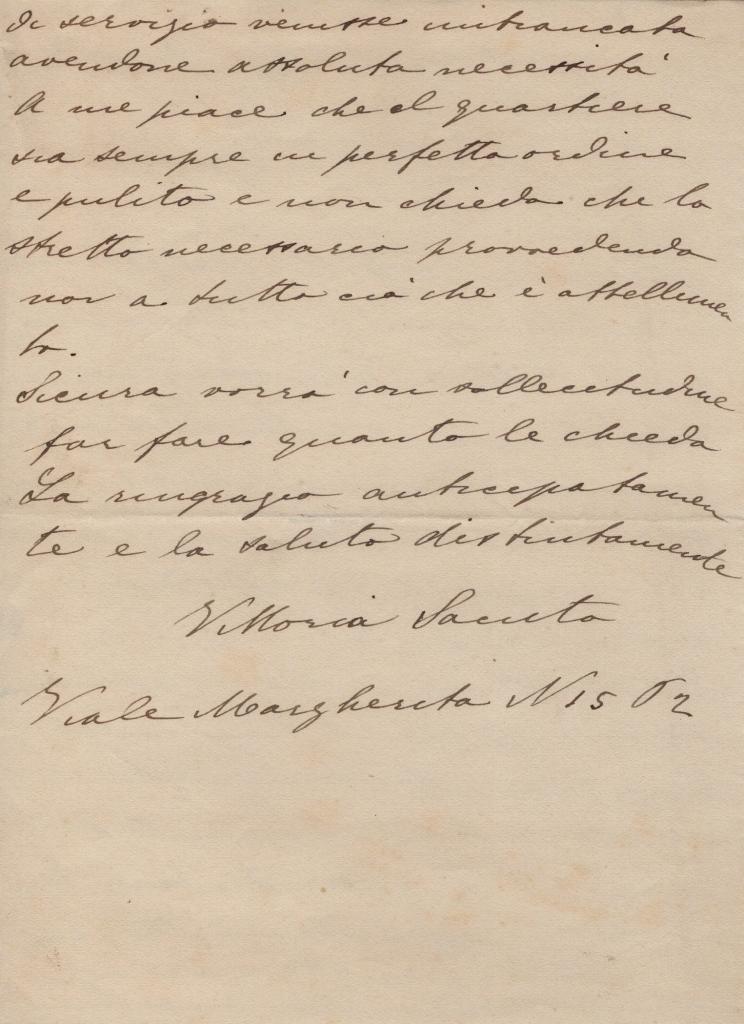 di servizio venisse imbiancata
avendone assoluta necessità
A me piace che il quartiere
sia sempre in perfetto ordine
e pulito e non chiedo che lo
stretto necessario provvedendo
noi a tutto ciò che è abbellimen
to.
Sicura vorrà con sollecitudine
far fare quanto le chiedo
La ringrazio anticipatamen
te e la saluto distintamente
Vittoria Sacuto
Viale Margherita N 15 P 2